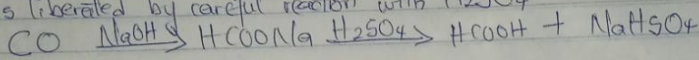 s liberated by careful reaction with H2SO4
CO NaOH> HCOONa H2SO4> HCOOH + NaHSO4